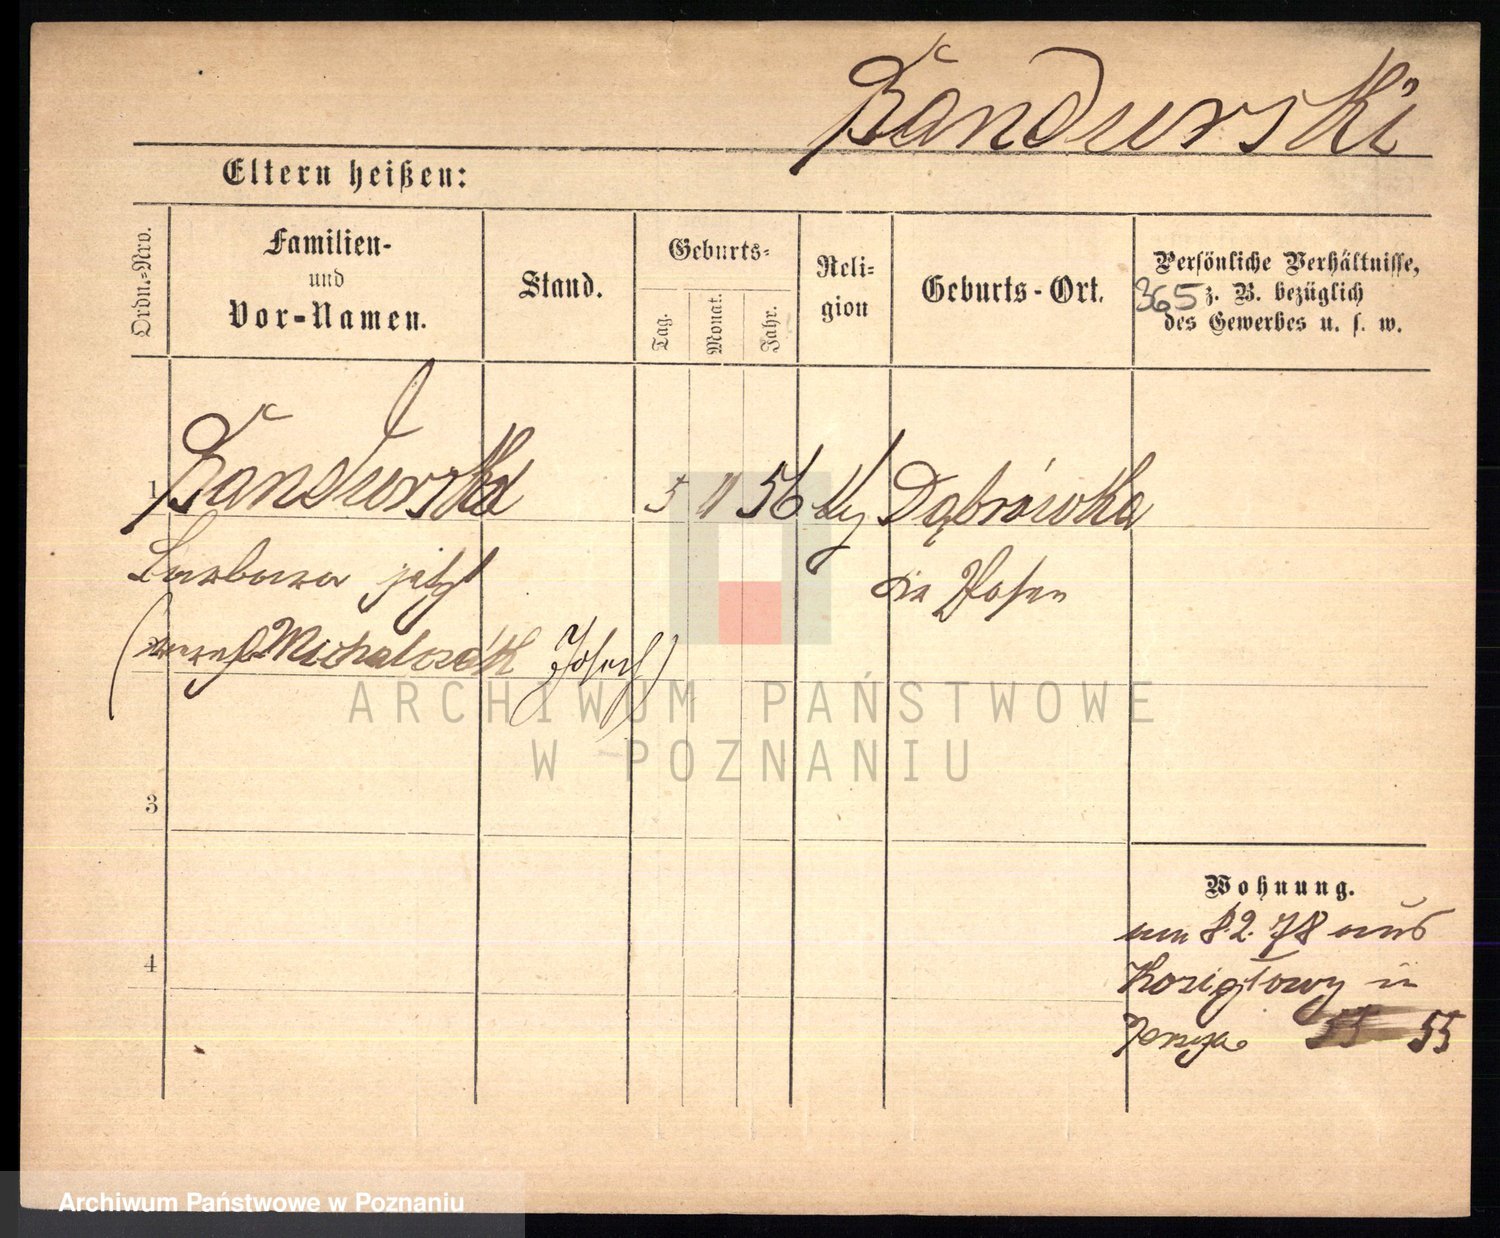 Bandurski
Eltern heißen:
Ordn.-Nro.
Familien-
und
Vor-Namen.
Stand.
Geburts-
Tag.
Monat.
Jahr.
Reli-
gion
Geburts-Ort.
Persönliche Verhältnisse,
365 z. B. bezüglich
des Gewerbes u. s. w.
1 Bandurska 5 11 56 Dąbrówka
Barbara jetzt
Posen
Michalczak Josef)
3
4
Wohnung.
am 8.2.78 aus
in
55 55
ARCHIWUM PAŃSTWOWE
W POZNANIU
Archiwum Państwowe w Poznaniu